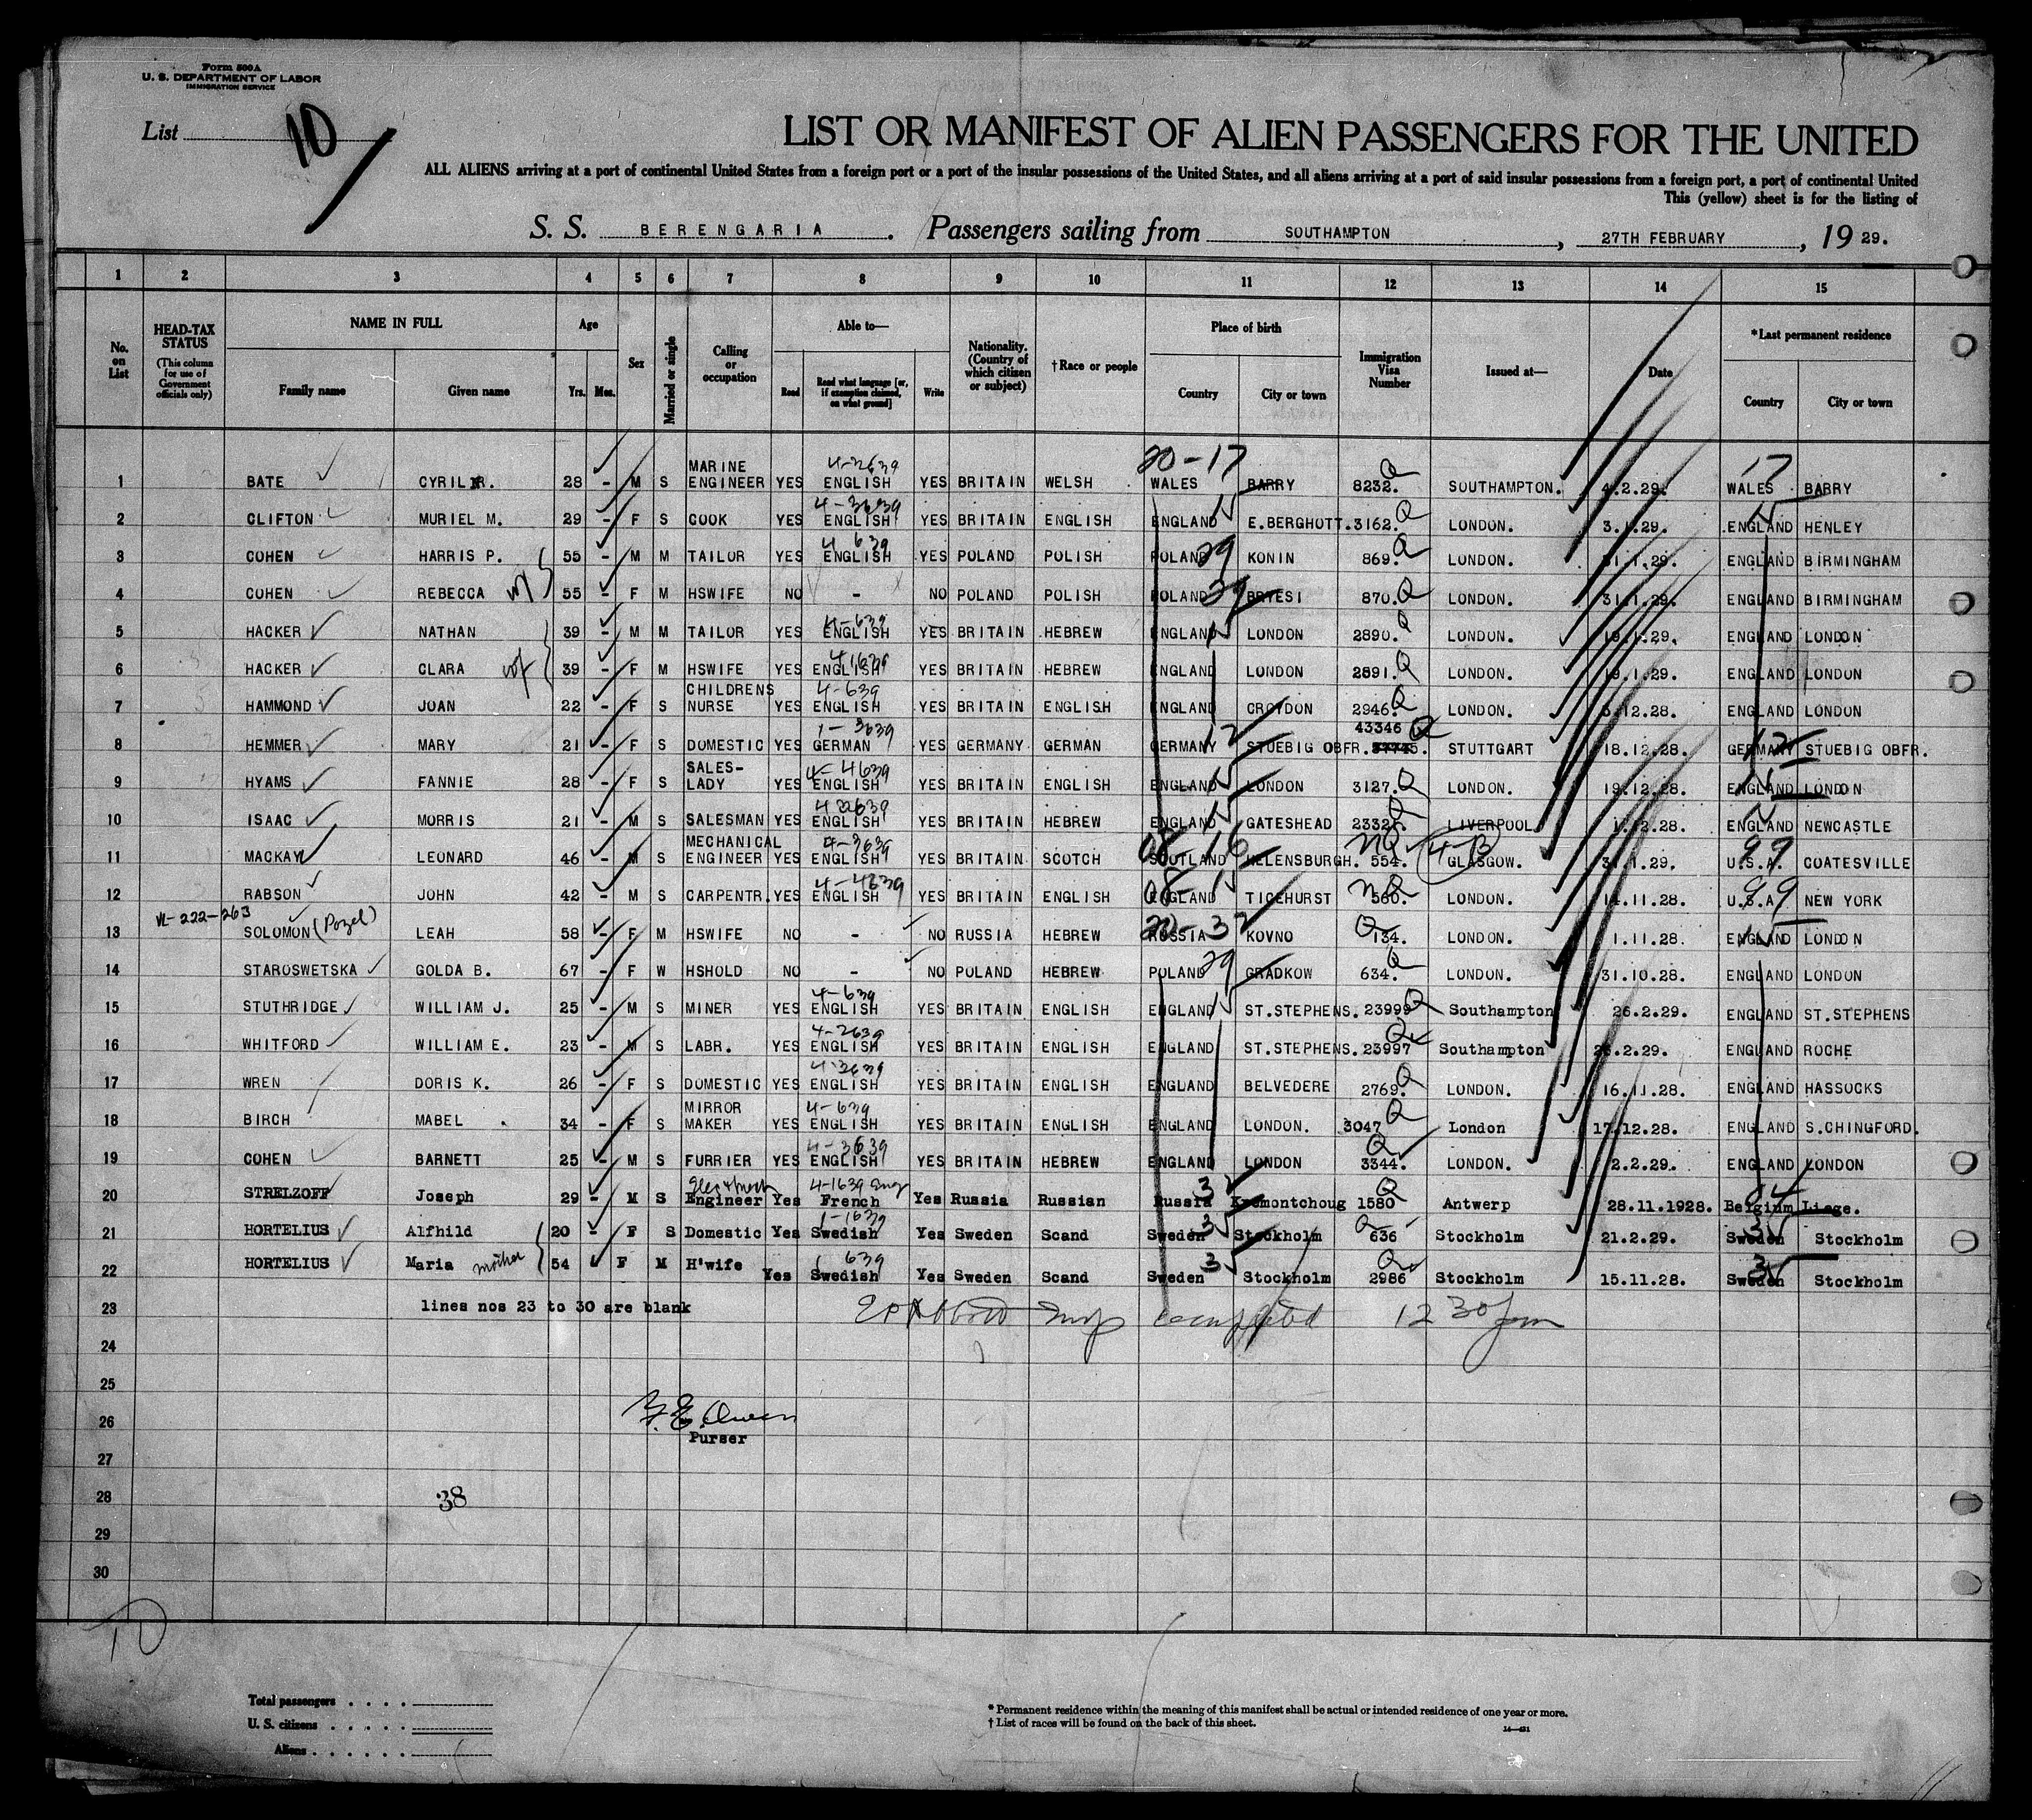 Form 500A
U. S. DEPARTMENT OF LABOR
IMMIGRATION SERVICE
List 10
LIST OR MANIFEST OF ALIEN PASSENGERS FOR THE UNITED
ALL ALIENS arriving at a port of continental United States from a foreign port or a port of the insular possessions of the United States, and all aliens arriving at a port of said insular possessions from a foreign port, a port of continental United
This (yellow) sheet is for the listing of
S. S. BERENGARIA. Passengers sailing from SOUTHAMPTON, 27TH FEBRUARY, 19 29.
1 2 3 4 5 6 7 8 9 10 11 12 13 14 15
No. on List
HEAD-TAX STATUS (This column for use of Government officials only)
NAME IN FULL Family name Given name
Age Yrs. Mos.
Sex
Married or single
Calling or occupation
Able to— Read Read what language [or, if exemption claimed, on what ground] Write
Nationality. (Country of which citizen or subject)
†Race or people
Place of birth Country City or town
Immigration Visa Number
Issued at—
Date
*Last permanent residence Country City or town
1 BATE CYRIL R. 28 - M S MARINE ENGINEER YES 4-2639 ENGLISH YES BRITAIN WELSH 20-17 WALES BARRY 8232. Q SOUTHAMPTON. 4.2.29. 17 WALES BARRY
2 CLIFTON MURIEL M. 29 - F S COOK YES 4-3639 ENGLISH YES BRITAIN ENGLISH ENGLAND E.BERGHOTT. 3162. Q LONDON. 3.1.29. ENGLAND HENLEY
3 COHEN HARRIS P. 55 - M M TAILOR YES 4 639 ENGLISH YES POLAND POLISH POLAND 29 KONIN 869. Q LONDON. 31.1.29. ENGLAND BIRMINGHAM
4 COHEN REBECCA wf 55 - F M HSWIFE NO - NO POLAND POLISH POLAND BRYESI 870. Q LONDON. 31.1.29. ENGLAND BIRMINGHAM
5 HACKER NATHAN 39 - M M TAILOR YES 4-639 ENGLISH YES BRITAIN HEBREW ENGLAND LONDON 2890. Q LONDON. 19.1.29. ENGLAND LONDON
6 HACKER CLARA wf 39 - F M HSWIFE YES 41639 ENGLISH YES BRITAIN HEBREW ENGLAND LONDON 2891. Q LONDON. 19.1.29. ENGLAND LONDON
7 HAMMOND JOAN 22 - F S CHILDRENS NURSE YES 4-639 ENGLISH YES BRITAIN ENGLISH ENGLAND CROYDON 2946. Q LONDON. 5.12.28. ENGLAND LONDON
8 HEMMER MARY 21 - F S DOMESTIC YES 1-3639 GERMAN YES GERMANY GERMAN GERMANY 12 STUEBIG OBFR. 43346 Q STUTTGART 18.12.28. GERMANY 12 STUEBIG OBFR.
9 HYAMS FANNIE 28 - F S SALES-LADY YES 4-4639 ENGLISH YES BRITAIN ENGLISH ENGLAND LONDON 3127. Q LONDON. 19.12.28. ENGLAND LONDON
10 ISAAC MORRIS 21 - M S SALESMAN YES 4 32639 ENGLISH YES BRITAIN HEBREW ENGLAND GATESHEAD 2332. Q LIVERPOOL 1.12.28. ENGLAND NEWCASTLE
11 MACKAY LEONARD 46 - M S MECHANICAL ENGINEER YES 4-3639 ENGLISH YES BRITAIN SCOTCH 08-16 SCOTLAND HELENSBURGH. 554. NQ 4-B GLASGOW. 31.1.29. 99 U.S.A. COATESVILLE
12 RABSON JOHN 42 - M S CARPENTR. YES 4-4639 ENGLISH YES BRITAIN ENGLISH 08-15 ENGLAND TICEHURST 560. NQ LONDON. 14.11.28. 99 U.S.A. NEW YORK
VL-222-263
13 SOLOMON (Pozel) LEAH 58 - F M HSWIFE NO - NO RUSSIA HEBREW 20-32 RUSSIA KOVNO 134. Q LONDON. 1.11.28. ENGLAND LONDON
14 STAROSWETSKA GOLDA B. 67 - F W HSHOLD NO - NO POLAND HEBREW POLAND 29 GRADKOW 634. Q LONDON. 31.10.28. ENGLAND LONDON
15 STUTHRIDGE WILLIAM J. 25 - M S MINER YES 4-639 ENGLISH YES BRITAIN ENGLISH ENGLAND 15 ST.STEPHENS. 23999 Q Southampton 26.2.29. ENGLAND ST.STEPHENS
16 WHITFORD WILLIAM E. 23 - M S LABR. YES 4-2639 ENGLISH YES BRITAIN ENGLISH ENGLAND ST.STEPHENS. 23997 Q Southampton 26.2.29. ENGLAND ROCHE
17 WREN DORIS K. 26 - F S DOMESTIC YES 4-3639 ENGLISH YES BRITAIN ENGLISH ENGLAND BELVEDERE 2769. Q LONDON. 16.11.28. ENGLAND HASSOCKS
18 BIRCH MABEL. 34 - F S MIRROR MAKER YES 4-639 ENGLISH YES BRITAIN ENGLISH ENGLAND LONDON. 3047 Q London 17.12.28. ENGLAND S.CHINGFORD.
19 COHEN BARNETT 25 - M S FURRIER YES 4-3639 ENGLISH YES BRITAIN HEBREW ENGLAND LONDON 3344. Q LONDON. 2.2.29. ENGLAND LONDON
20 STRELZOFF Joseph 29 - M S Engineer Yes 4-1639 Eng French Yes Russia Russian Russia Kremontchoug 1580 Q Antwerp 28.11.1928. 04 Belgium Liege.
21 HORTELIUS Alfhild 20 - F S Domestic Yes 1-1639 Swedish Yes Sweden Scand Sweden Stockholm 636 Q Stockholm 21.2.29. Sweden Stockholm
22 HORTELIUS Maria mother 54 F M H'wife Yes 1 639 Swedish Yes Sweden Scand Sweden Stockholm 2986 Q Stockholm 15.11.28. Sweden Stockholm
23 lines nos 23 to 30 are blank Insp completed 12 30 pm
24
25
26 Owen
Purser
27
28 38
29
30
10
Total passengers . . . .
U. S. citizens . . . . .
Aliens . . . . . .
* Permanent residence within the meaning of this manifest shall be actual or intended residence of one year or more.
† List of races will be found on the back of this sheet.
14—431